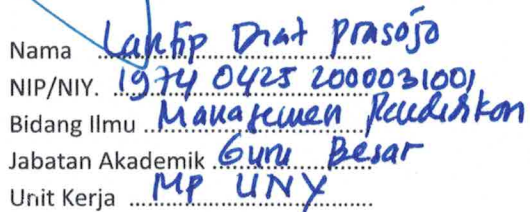 Nama Lantip Diat Prasojo
NIP/NIY. 19740425 2000031001
Bidang Ilmu Manajemen Pendidikan
Jabatan Akademik Guru Besar
Unit Kerja MP UNY